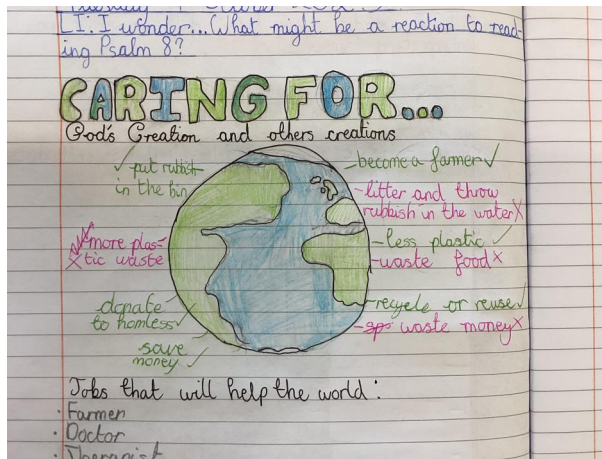 L.I: I wonder...What might be a reaction to read-
ing Psalm 8?
CARING FOR...
God's Creation and others creations
✓ put rubbish
in the bin
more plas-
tic waste
donate
to homless ✓
save
money ✓
become a farmer ✓
-litter and throw
rubbish in the water X
-less plastic ✓
-waste food X
-recycle or reuse ✓
- waste money X
Jobs that will help the world:
· Farmer
· Doctor
· Therapist